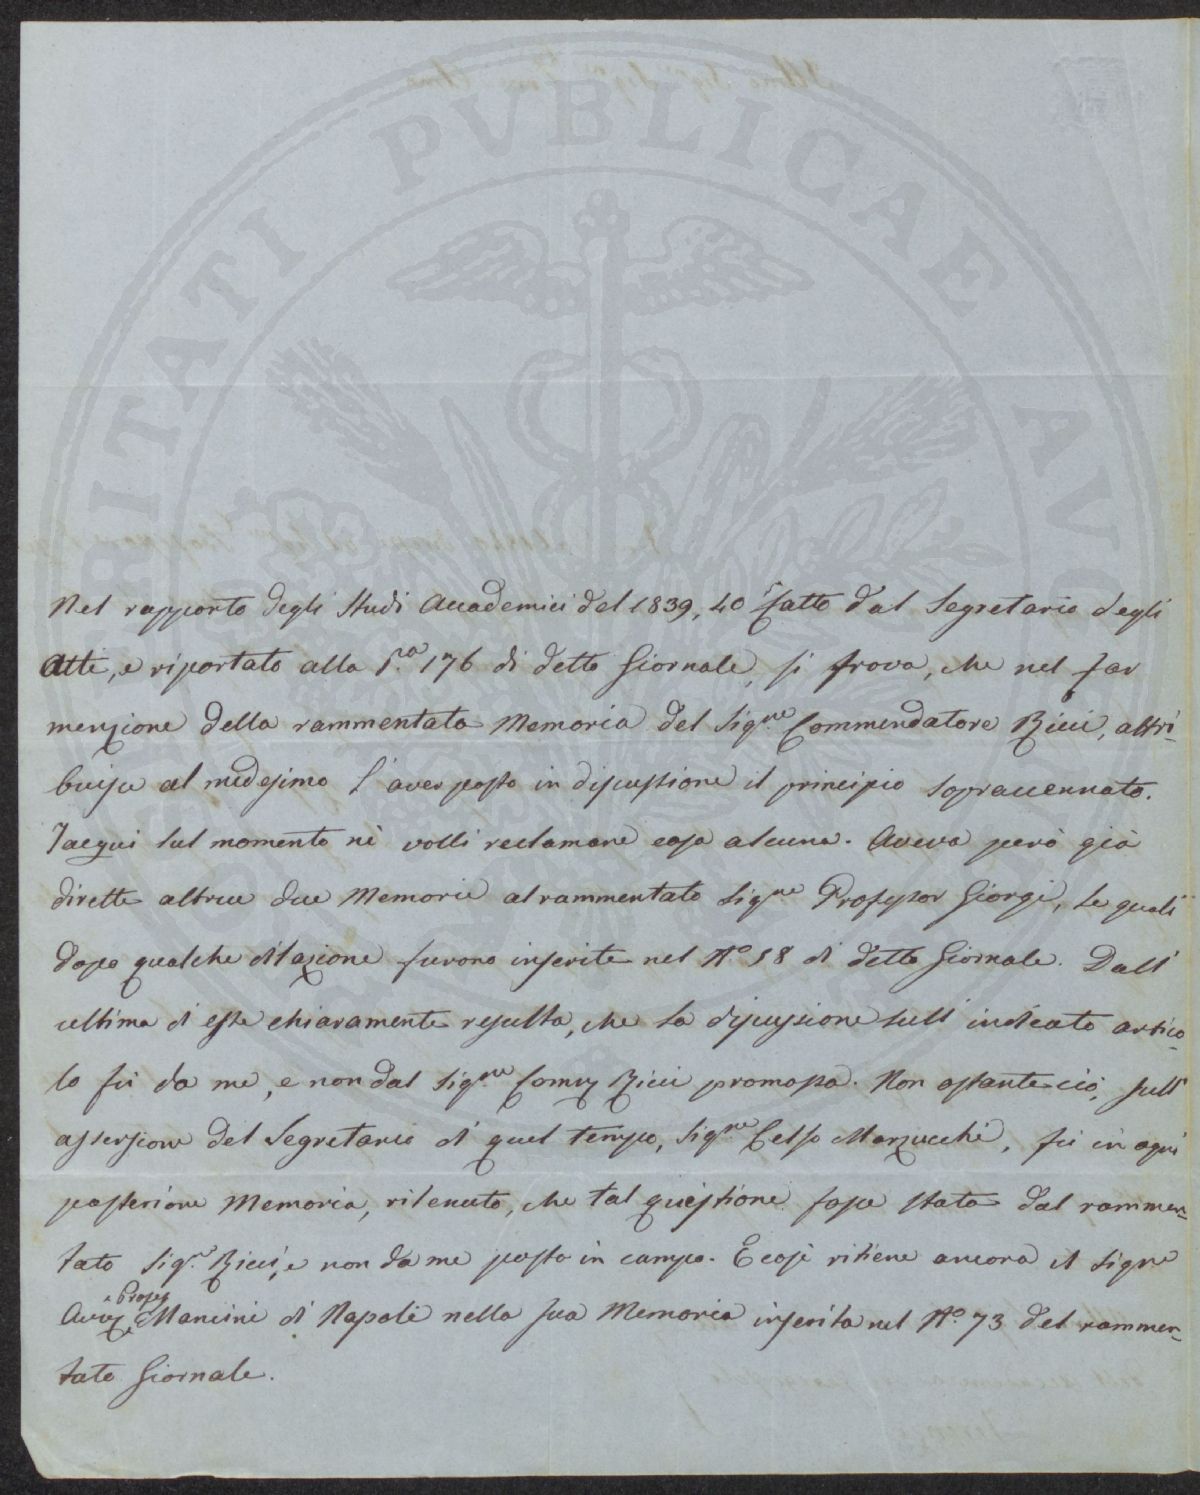 Nel rapporto degli Studi Accademici del 1839, 40 fatto dal Segretario degli
Atti, e riportato alla P.a 176 di detto Giornale, si trova, che nel far
menzione della rammentata Memoria del Sig.re Commendatore Ricci, attri-
buisce al medesimo l'aver posto in discussione il principio sopraccennato.
Tacqui sul momento nè volli reclamare cosa alcuna. Aveva però già
dirette altre due Memorie al rammentato Sig.re Professor Giorgi, le quali
dopo qualche dilazione furono inserite nel N.o 58 di detto Giornale. Dall'
ultima di esse chiaramente resulta, che la discussione sull' indicato artico-
lo fù da me, e non dal Sig.re Comm Ricci promossa. Non ostante ciò, sull'
asserzione del Segretario di quel tempo, Sig.re Celso Marzucchi, fù in ogni
posteriore Memoria, ritenuto, che tal quistione fosse stata dal rammen-
tato Sig.r Ricci, e non da me posta in campo. E così ritiene ancora il Signre
Avv e Profes Mancini di Napoli nella sua Memoria inserita nel N.o 73 del rammen-
tato Giornale.
PVBLICAE